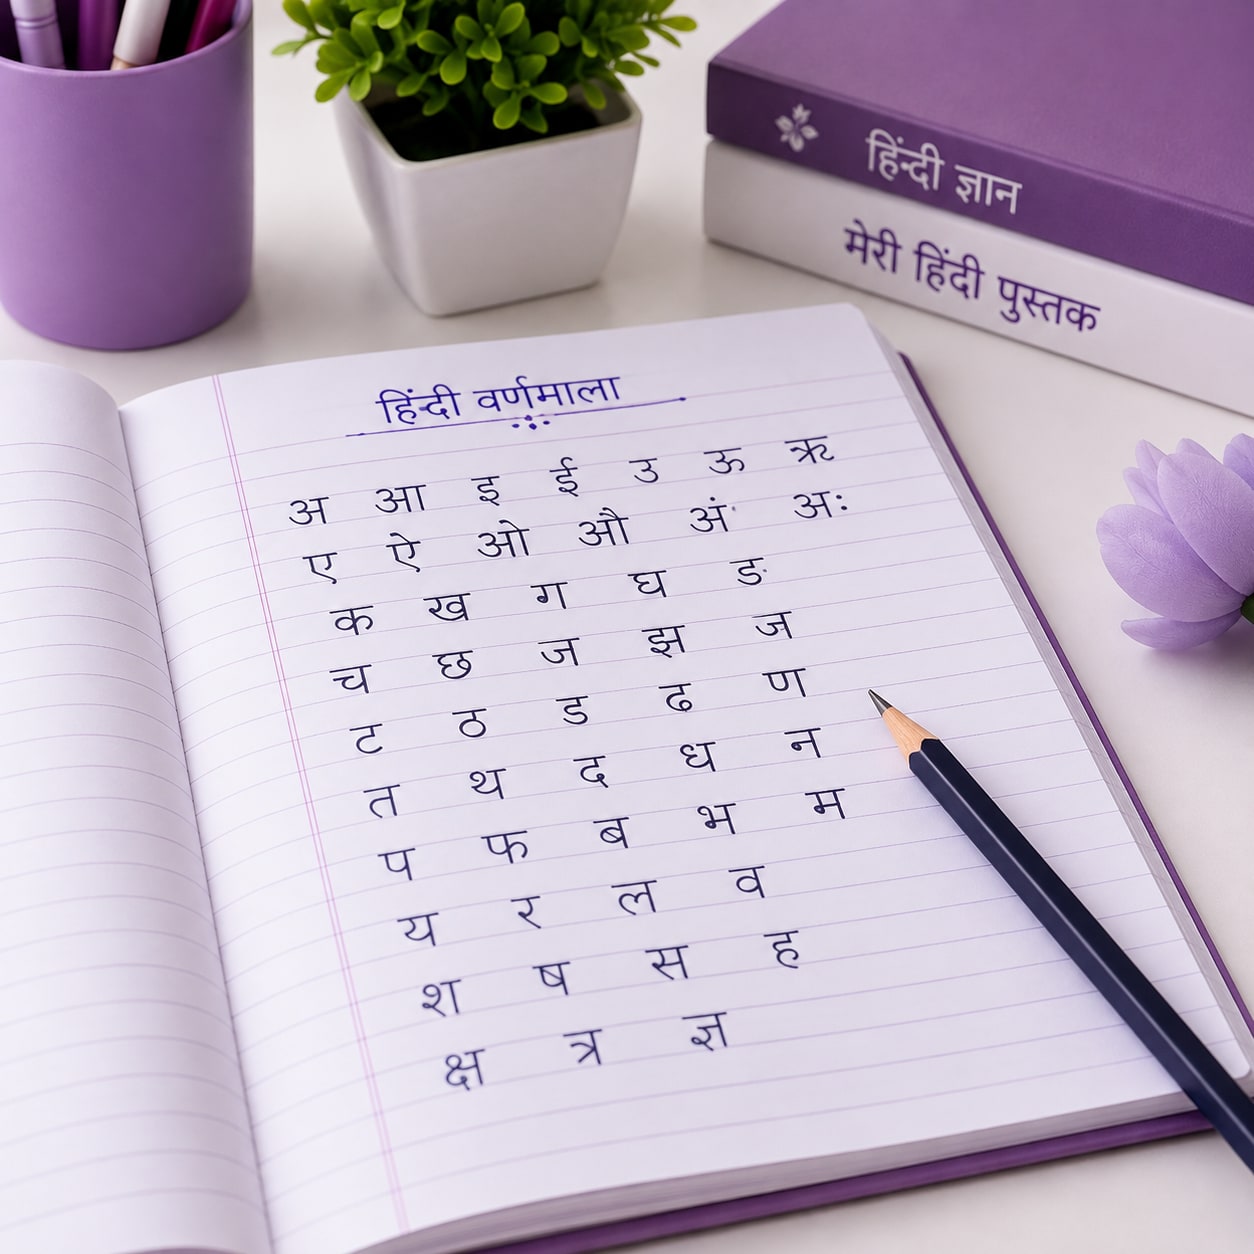 हिंदी ज्ञान
मेरी हिंदी पुस्तक
हिंदी वर्णमाला
अ आ इ ई उ ऊ ऋ
ए ऐ ओ औ अं अः
क ख ग घ ङ
च छ ज झ ज
ट ठ ड ढ ण
त थ द ध न
प फ ब भ म
य र ल व
श ष स ह
क्ष त्र ज्ञ